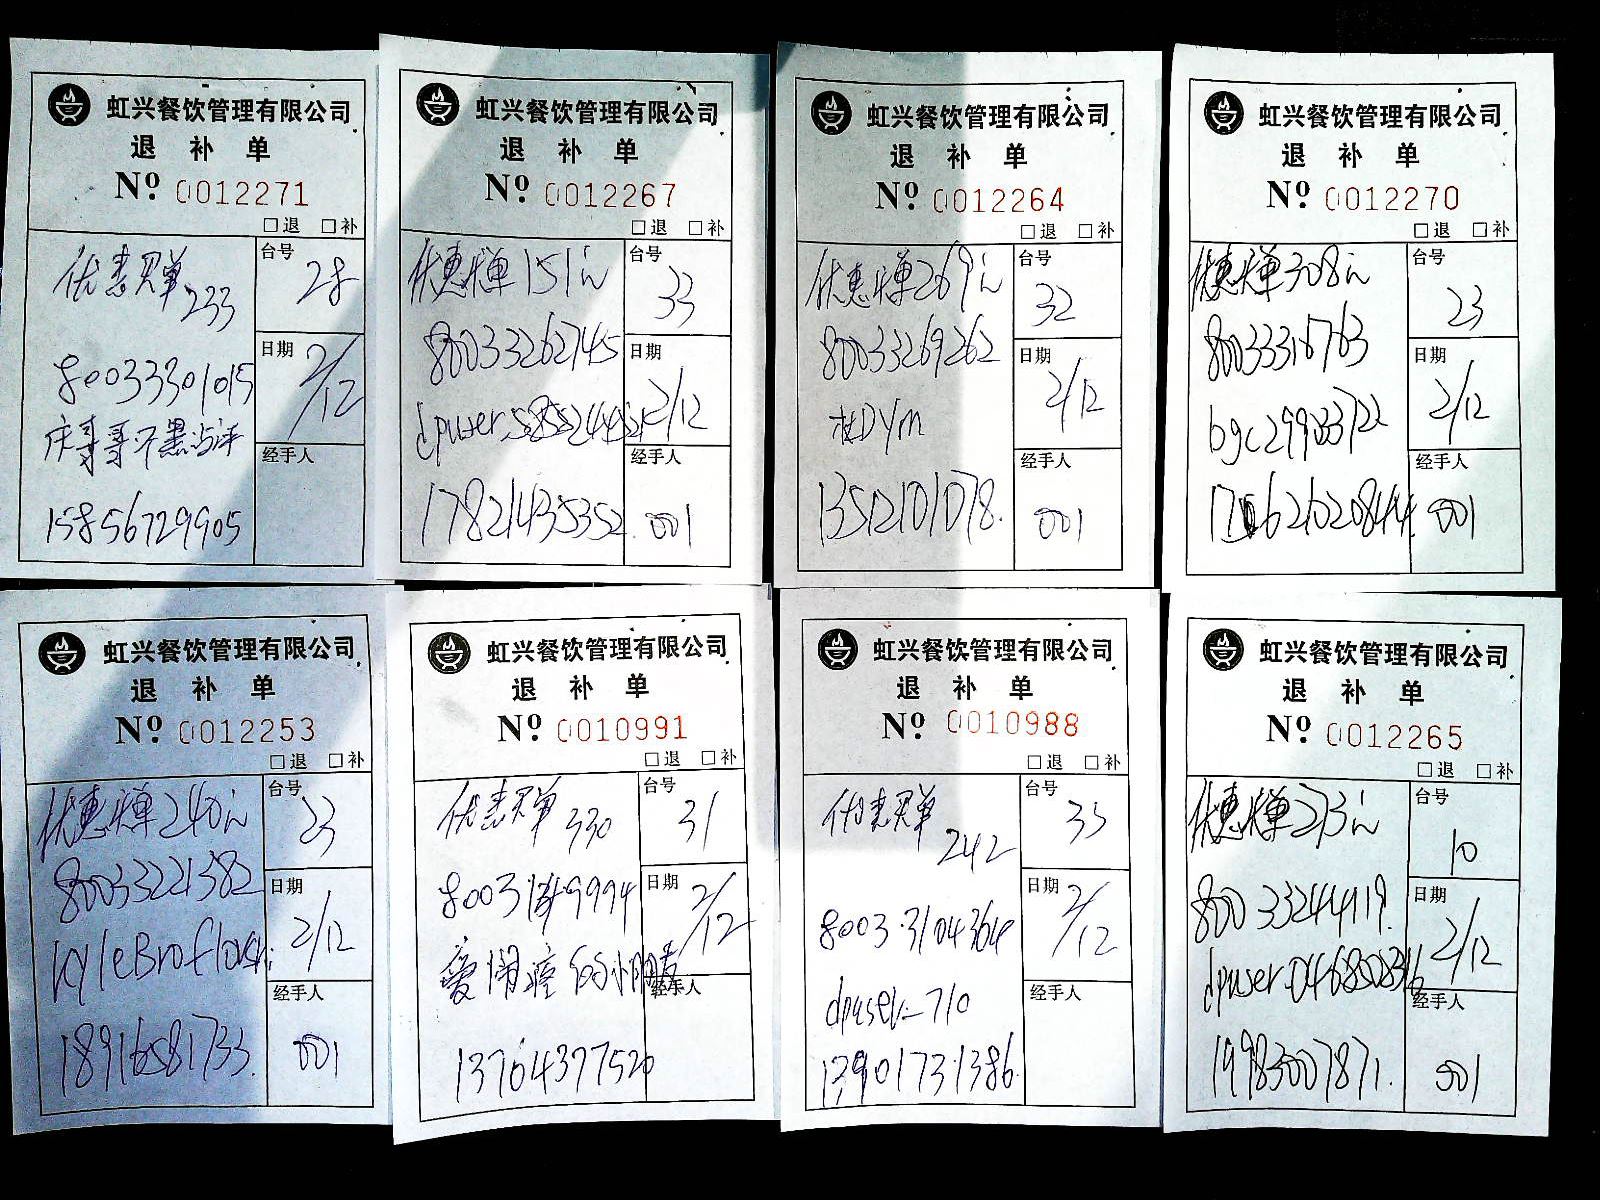 虹兴餐饮管理有限公司
退 补 单
Nº 0012271
□退 □补
优惠买单 233
台号 28
80033301015
日期 2/12
庆哥哥不黑
经手人
15856729905
虹兴餐饮管理有限公司
退 补 单
Nº 0012267
□退 □补
优惠买单 151元
台号 33
80033262745
日期 2/12
经手人 001
17821435352
虹兴餐饮管理有限公司
退 补 单
Nº 0012264
□退 □补
优惠买单 269元
台号 32
80033269262
日期 2/12
桂DYM
经手人 001
13512101078
虹兴餐饮管理有限公司
退 补 单
Nº 0012270
□退 □补
优惠买单 308元
台号 23
日期 2/12
经手人 001
虹兴餐饮管理有限公司
退 补 单
Nº 0012253
□退 □补
优惠买单 240元
台号 23
80033221382
日期 2/12
kyleBroflovski
经手人 001
18916581733
虹兴餐饮管理有限公司
退 补 单
Nº 0010991
□退 □补
优惠买单 330
台号 31
日期 2/12
的小朋友
经手人
13764377520
虹兴餐饮管理有限公司
退 补 单
Nº 0010988
□退 □补
优惠买单 242
台号 33
80033104364
日期 2/12
dpuser-710
经手人
13901731386
虹兴餐饮管理有限公司
退 补 单
Nº 0012265
□退 □补
优惠买单 273元
台号 10
80033244919
日期 2/12
经手人 001
19983007871